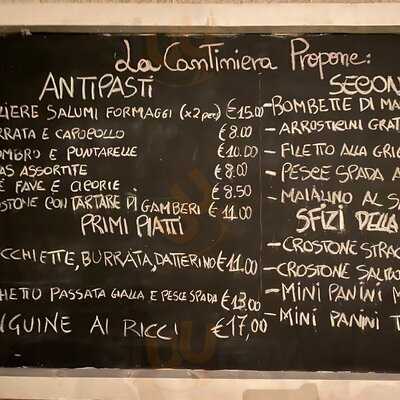 La Cantiniera Propone:
ANTIPASTI
LIERE SALUMI FORMAGGI (x2 per) €15.00
RRATA E CAPOCOLLO €8.00
OMBRO E PUNTARELLE €10.00
AS ASSORTITE €8.00
E FAVE E CICORIE €8.50
OSTONE CON TARTARE DI GAMBERI €11.00
PRIMI PIATTI
CCHIETTE, BURRATA, DATTERINO €11.00
HETTO PASSATA GIALLA E PESCE SPADA €13.00
NGUINE AI RICCI €17,00
SECON
-BOMBETTE DI MA
- ARROSTICINI GRAT
- FILETTO ALLA GRI
- PESCE SPADA A
- MAIALINO AL SA
SFIZI DELLA
-CROSTONE STRAC
-CROSTONE SALMO
-MINI PANINI M
-MINI PANINI T